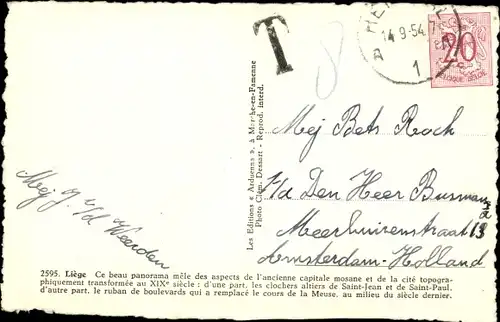 T
14-9-54
A
1
20
BELGIQUE-BELGIE
Mej Bets Roch
p/a Den Heer Busman
Meerhuizenstraat 13
Amsterdam-Holland
Mej J. v/d Weerden
Les Editions « Arduenna », à Marche-en-Famenne
Photo Clém. Dessart - Reprod. interd.
2595. Liège Ce beau panorama mêle des aspects de l'ancienne capitale mosane et de la cité topogra-
phiquement transformée au XIXe siècle : d'une part, les clochers altiers de Saint-Jean et de Saint-Paul,
d'autre part, le ruban de boulevards qui a remplacé le cours de la Meuse, au milieu du siècle dernier.